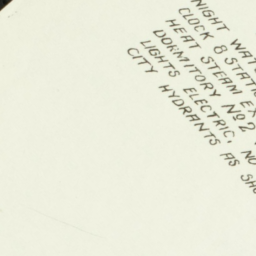 NIGHT
CLOCK 8
HEAT STEAM
DORMITORY Nº 2
LIGHTS ELECTRIC, NO
CITY HYDRANTS AS